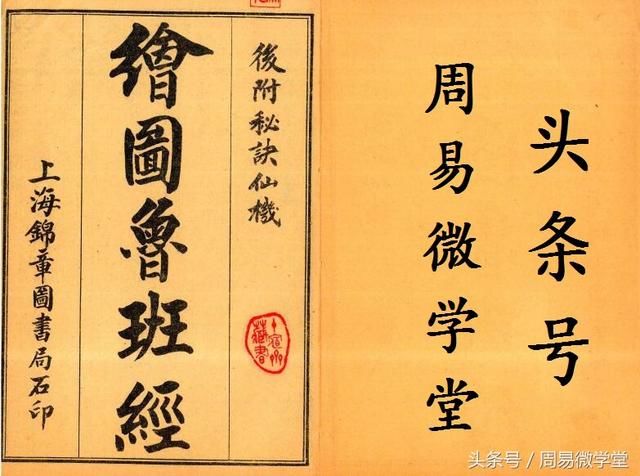 头条号
周易微学堂
後附秘訣仙機
繪圖魯班經
上海錦章圖書局石印
头条号 / 周易微学堂